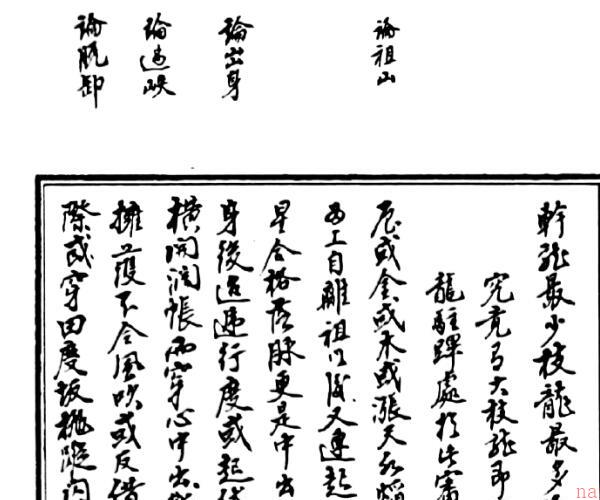 論祖山
論出身
論過峽
論脫卸
幹龍最少枝龍最多
究竟百大枝龍即
龍駐蹕處於此
辰或金或木或漲天水
而工自離祖以後又連起
星合格落脈更是中出
身後迢遞行度或起伏
橫開濶帳而穿心中出
擁護不令風吹或反借
際或穿田度坂
na